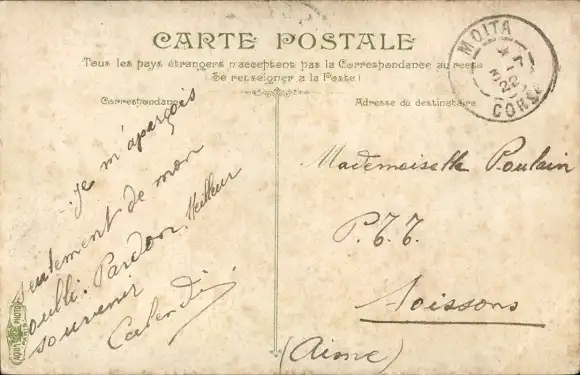 CARTE POSTALE
Tous les pays étrangers n'acceptent pas la Correspondance au recto
(Se renseigner à la Poste)
Correspondance
Adresse du destinataire
MOITA
CORSE
Je m'aperçois
seulement de mon
oubli. Pardon, Meilleur
souvenir
Mademoiselle Poulain
P.T.T.
Soissons
(Aisne)